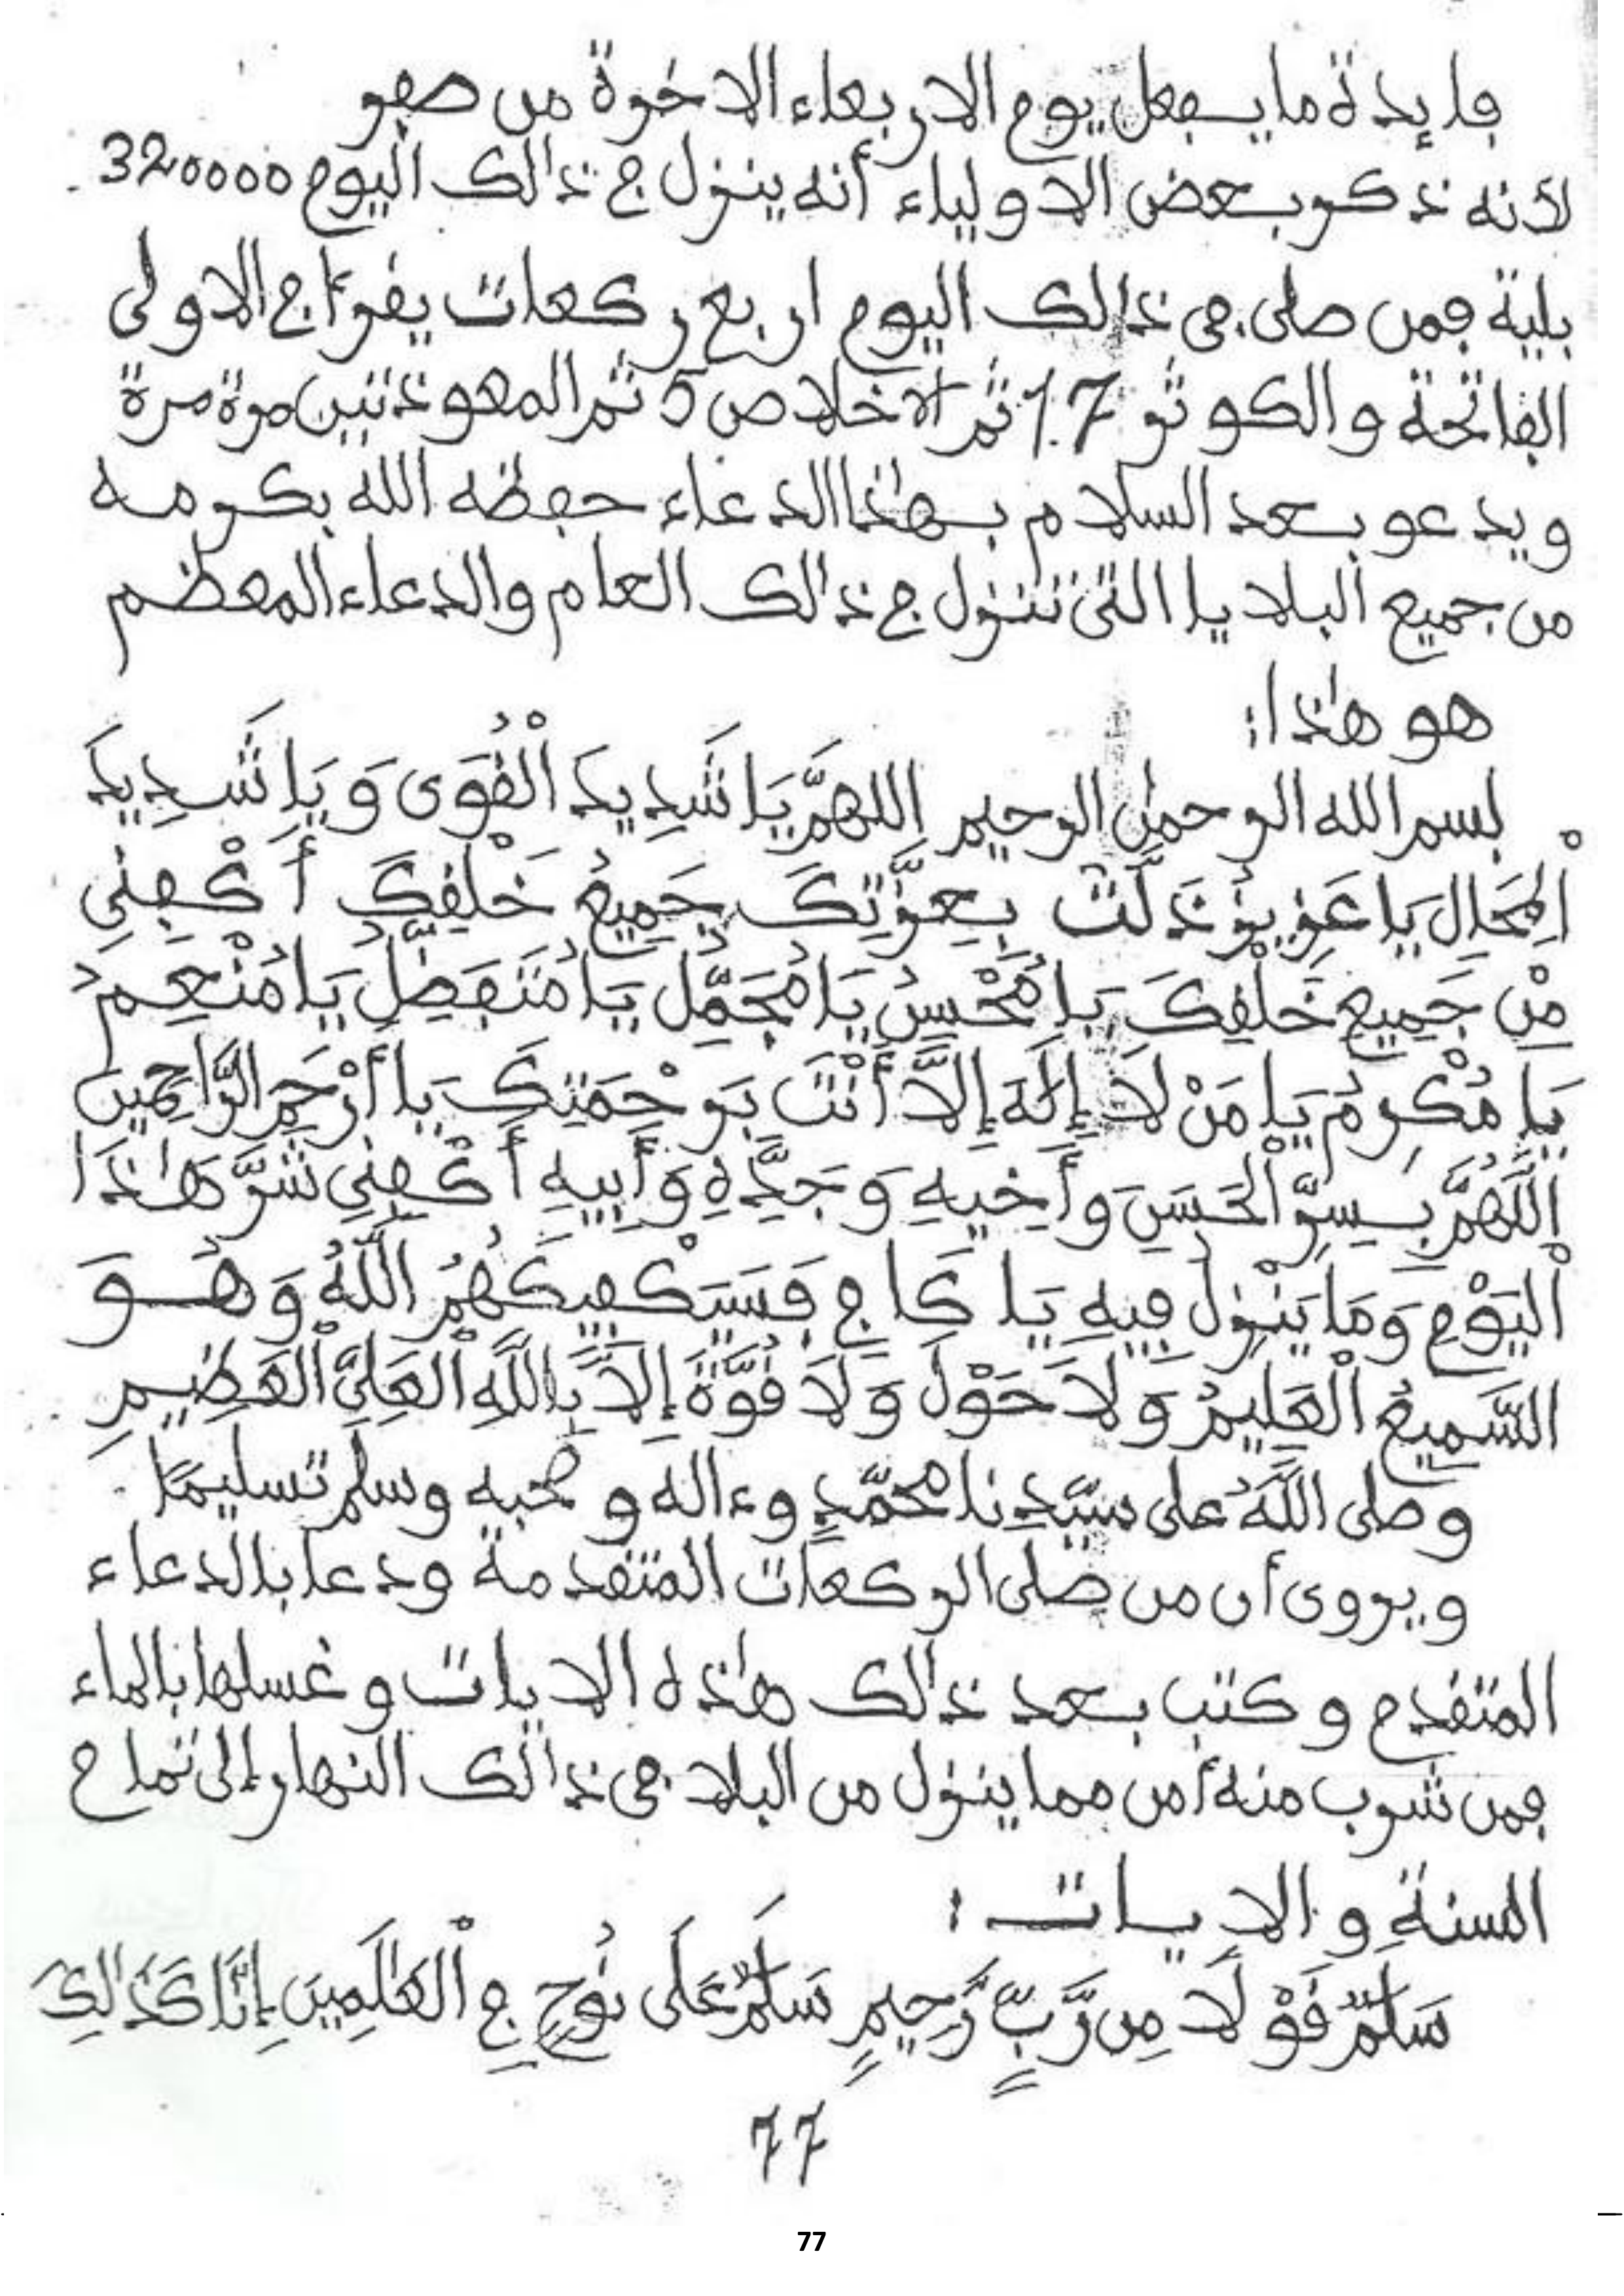 فايدة ما يفعل يوم الاربعاء الاخرة من صفر
لأنه ذكر بعض الاولياء أنه ينزل في ذالك اليوم 320000
بلية فمن صلى في ذالك اليوم اربع ركعات يقرأ في الاولى
الفاتحة والكوثر 17 ثم الاخلاص 5 ثم المعوذتين مرة مرة
ويدعو بعد السلام بهٰذا الدعاء حفظه الله بكرمه
من جميع البلايا التي تنزل في ذالك العام والدعاء المعظم
هو هٰذا:
بسم الله الرحمٰن الرحيم اللهمَّ يَا شَدِيدَ الْقُوَى وَيَا شَدِيدَ
الْمِحَالِ يَا عَزِيزُ ذَلَّتْ بِعِزَّتِكَ جَمِيعُ خَلْقِكَ أَكْفِنِي
مِنْ جَمِيعِ خَلْقِكَ يَا مُحْسِنُ يَا مُجَمِّلُ يَا مُتَفَضِّلُ يَا مُنْعِمُ
يَا مُكْرِمُ يَا مَنْ لَا إِلَٰهَ إِلَّا أَنْتَ بِرَحْمَتِكَ يَا أَرْحَمَ الرَّاحِمِينَ
اللَّهُمَّ بِسِرِّ الْحَسَنِ وَأَخِيهِ وَجَدِّهِ وَأَبِيهِ أَكْفِنِي شَرَّ هَٰذَا
الْيَوْمِ وَمَا يَنْزِلُ فِيهِ يَا كَافِي فَسَيَكْفِيكَهُمُ اللَّهُ وَهُوَ
السَّمِيعُ الْعَلِيمُ وَلَا حَوْلَ وَلَا قُوَّةَ إِلَّا بِاللَّهِ الْعَلِيِّ الْعَظِيمِ
وصلى اللَّهُ على سيّدِنا محمّدٍ وءاله وصحبه وسلم تسليمًا .
ويروى أن من صلى الركعات المتقدمة ودعا بالدعاء
المتقدم وكتب بعد ذالك هٰذه الايات وغسلها بالماء
فمن شرب منه أمن مما ينزل من البلاء في ذالك النهار إلى تمام
السنة والايات :
سَلَٰمٌ قَوْلًا مِن رَّبٍّ رَّحِيمٍ سَلَٰمٌ عَلَى نُوحٍ فِي الْعَٰلَمِينَ إِنَّا كَذَٰلِكَ
77
77